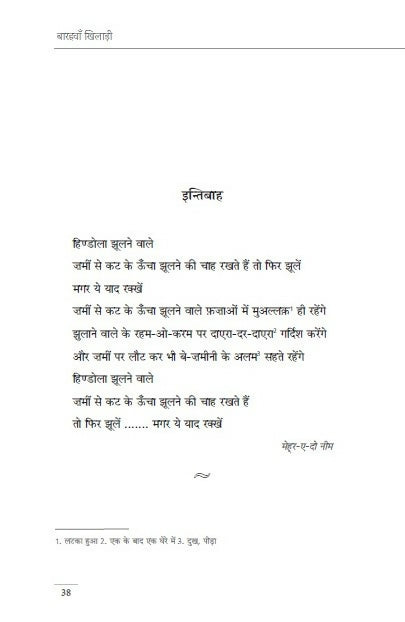 बारहवाँ खिलाड़ी
इन्तिबाह
हिण्डोला झूलने वाले
ज़मीं से कट के ऊँचा झूलने की चाह रखते हैं तो फिर झूलें
मगर ये याद रक्खें
ज़मीं से कट के ऊँचा झूलने वाले फ़ज़ाओं में मुअल्लक़¹ ही रहेंगे
झुलाने वाले के रहम-ओ-करम पर दाएरा-दर-दाएरा² गर्दिश करेंगे
और ज़मीं पर लौट कर भी बे-ज़मीनी के अलम³ सहते रहेंगे
हिण्डोला झूलने वाले
ज़मीं से कट के ऊँचा झूलने की चाह रखते हैं
तो फिर झूलें ....... मगर ये याद रक्खें
मेह्र-ए-दो नीम
1. लटका हुआ 2. एक के बाद एक घेरे में 3. दुख, पीड़ा
38